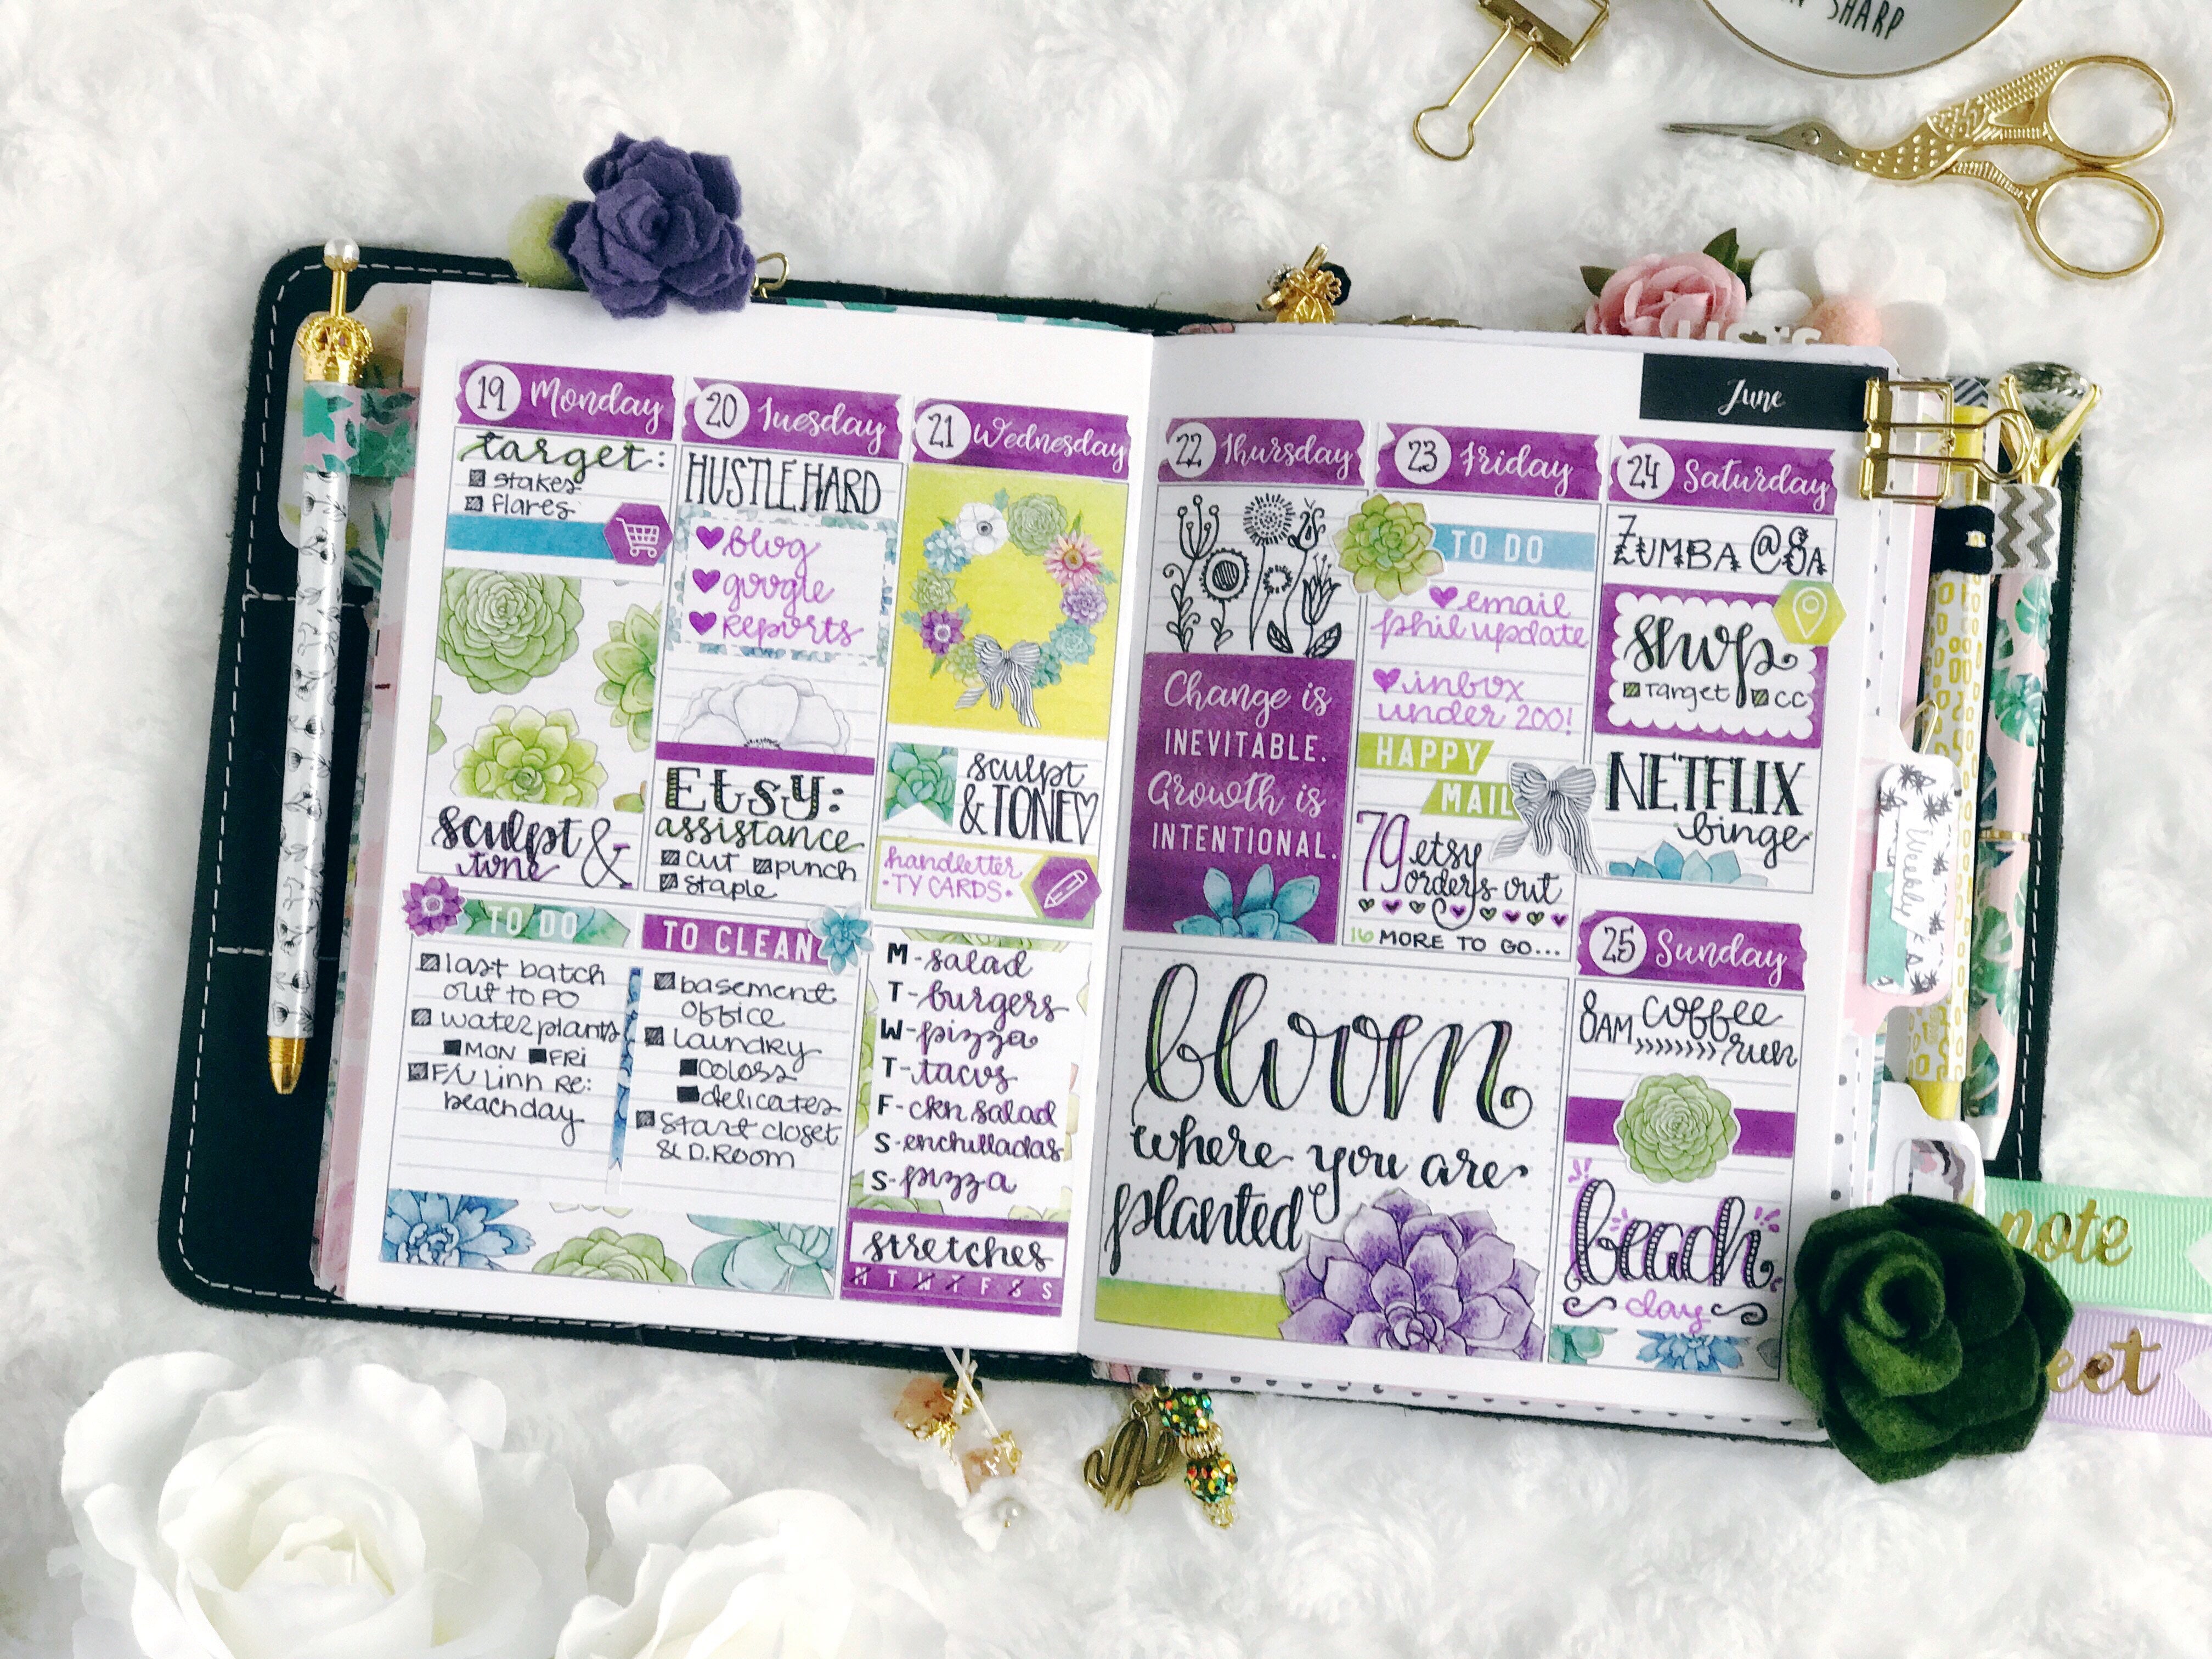 N SHARP
June
19 Monday
target:
stakes
flares
sculpt &
tone
20 Tuesday
HUSTLE HARD
blog
google
reports
Etsy:
assistance
cut punch
staple
21 Wednesday
sculpt
& TONE
handletter
• TY CARDS •
TO DO
last batch
out to PO
water plants
MON FRI
F/U Linh Re:
beach day
TO CLEAN
basement
office
laundry
colors
delicates
start closet
& D.ROOM
M - salad
T - burgers
W - pizza
T - tacos
F - ckn salad
S - enchilladas
S - pizza
stretches
M T W T F S S
22 Thursday
Change is
INEVITABLE.
Growth is
INTENTIONAL.
23 Friday
TO DO
email
phil update
inbox
under 200!
HAPPY
MAIL
79 etsy
orders out
16 MORE TO GO...
bloom
where you are
planted
24 Saturday
ZUMBA @ 8A
shop
Target CC
NETFLIX
binge
25 Sunday
8AM coffee
run
beach
day
Weekly
note
eet